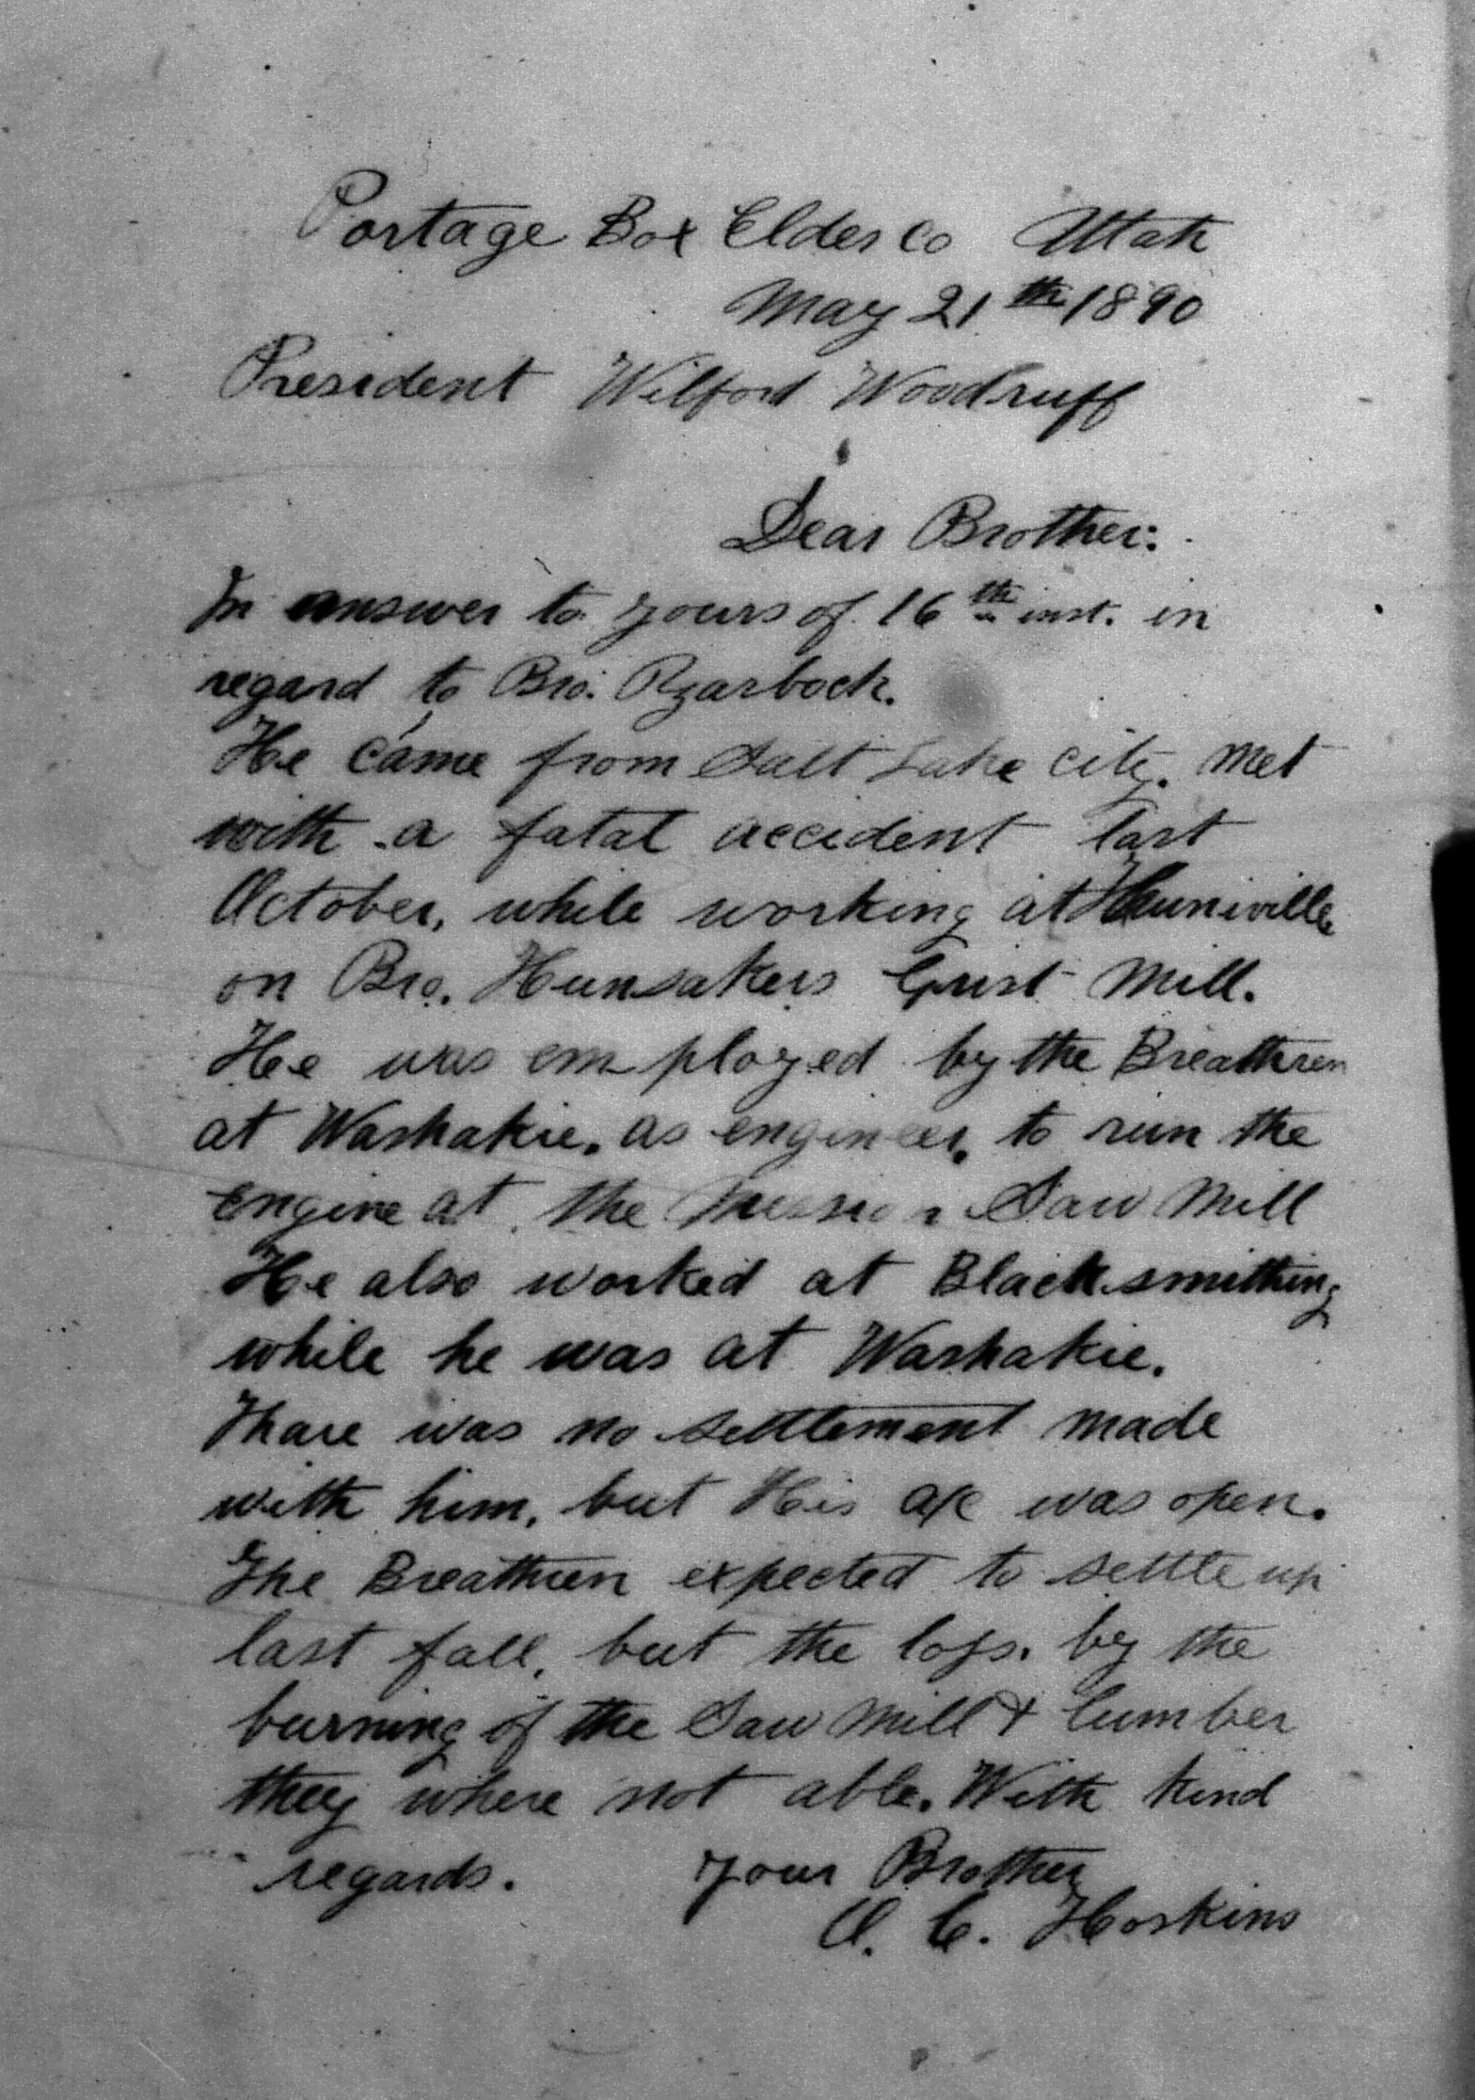 Portage Box Elder Co Utah
May 21th 1890
President Wilford Woodruff
Dear Brother:
In answer to yours of 16th inst. in
regard to Bro. Rzarbock.
He came from Salt Lake City. Met
with a fatal accident last
October, while working at Huniville
on Bro. Hunsakers Grist Mill.
He was employed by the Breathren
at Washakie, as engineer, to run the
Engine at the Mission Saw Mill
He also worked at Blacksmithing
while he was at Washakie.
Thare was no settlement made
with him, but His a/c was open.
The Breathren expected to settle up
last fall, but the loss. by the
burning of the Saw Mill & lumber
they where not able. With kind
regards. Your Brother
C. Hoskins